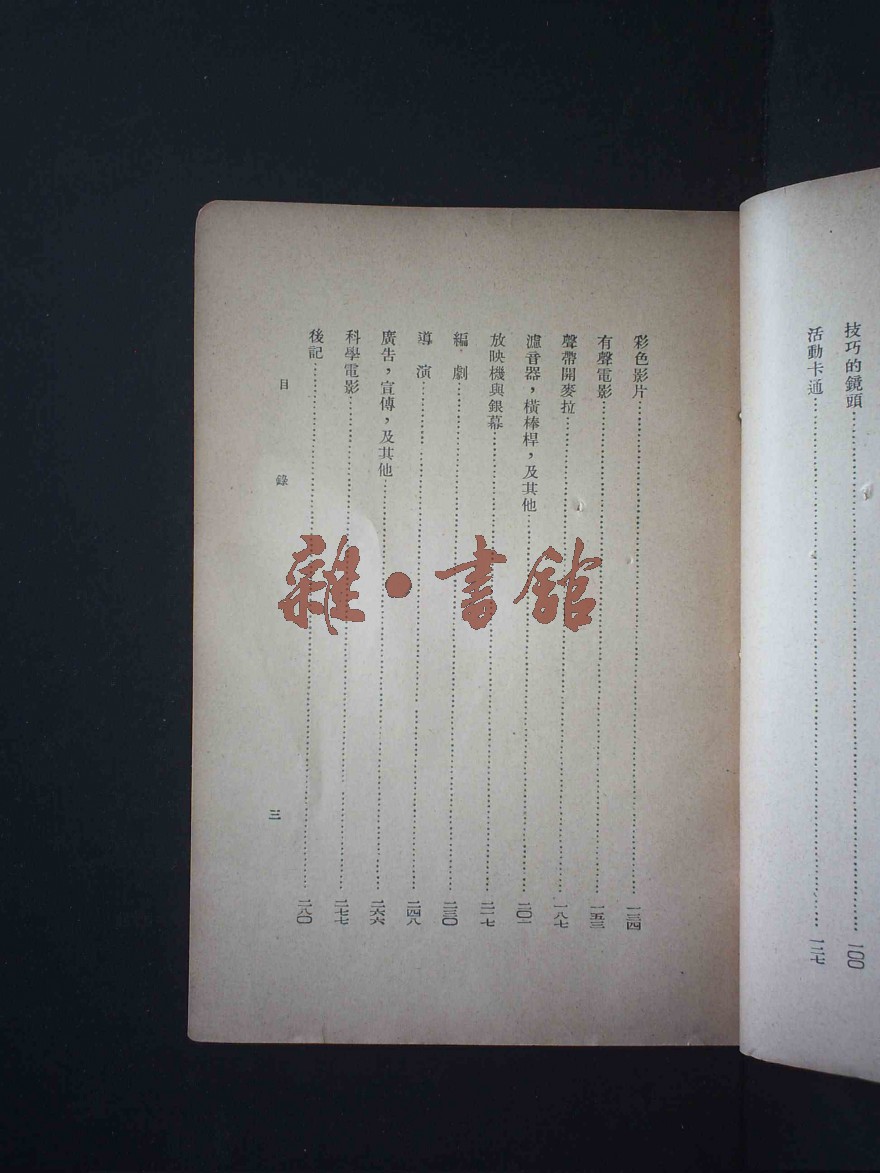 技巧的鏡頭……一〇〇
活動卡通……一二七
彩色影片……一三四
有聲電影……一五三
聲帶開麥拉……一八七
濾音器，橫棒桿，及其他……二〇一
放映機與銀幕……二一七
編劇……二三〇
導演……二四八
廣告，宣傳，及其他……二六六
科學電影……二七七
後記……二八〇
目錄
三
雜·書館